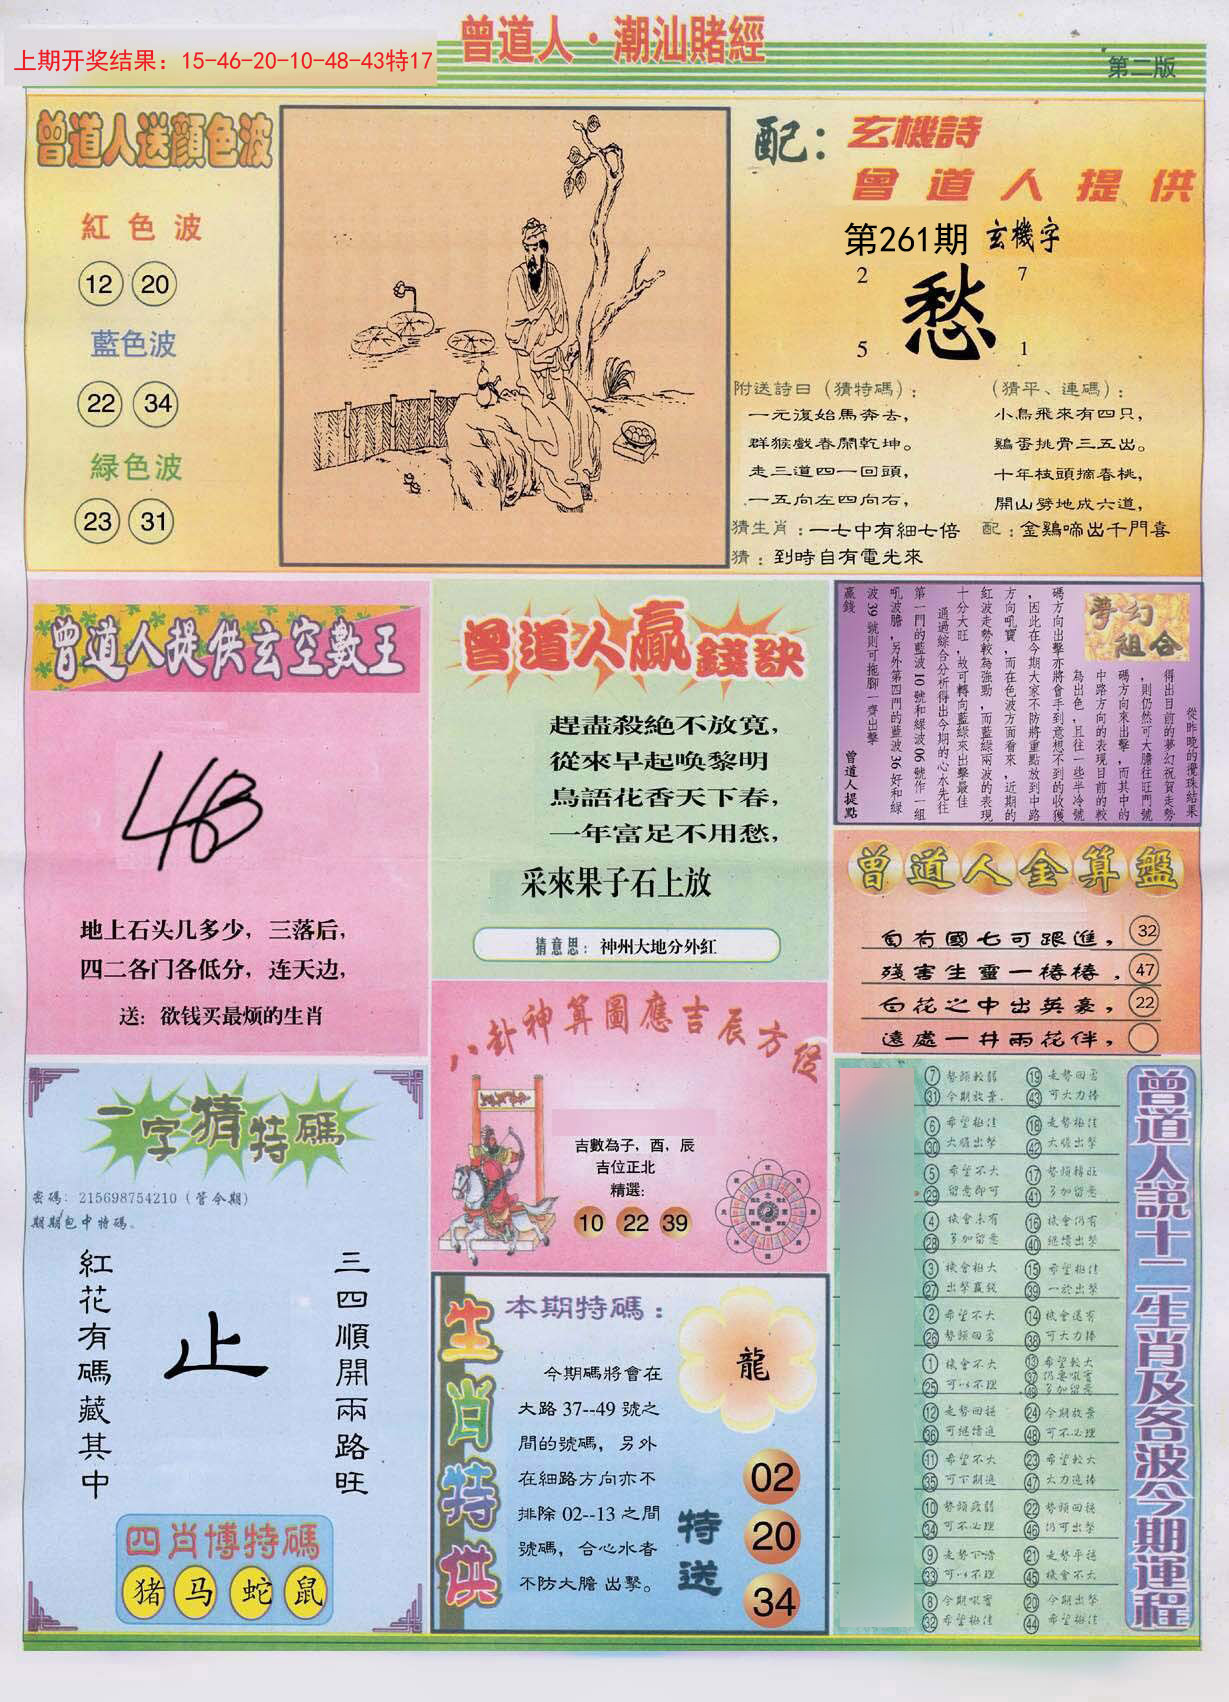 上期开奖结果：15-46-20-10-48-43特17
曾道人·潮汕賭經
第二版
曾道人送顏色波
紅色波
12 20
藍色波
22 34
綠色波
23 31
配：玄機詩
曾道人提供
第261期 玄機字
2 7
愁
5 1
附送詩曰（猜特碼）：
一元復始馬奔去，
群猴戲春鬧乾坤。
走三道四一回頭，
一五向左四向右，
（猜平、連碼）：
小鳥飛來有四只，
鷄蛋挑骨三五出。
十年枝頭摘春桃，
開山劈地成六道，
猜生肖：一七中有細七倍
配：金鷄啼出千門喜
猜：到時自有電光來
曾道人提供玄空數王
48
地上石头几多少，三落后，
四二各门各低分，连天边，
送：欲钱买最烦的生肖
曾道人贏錢訣
趕盡殺絕不放寬，
從來早起喚黎明
鳥語花香天下春，
一年富足不用愁，
采來果子石上放
猜意思：神州大地分外紅
夢幻組合
從昨晚的攪珠結果
得出目前的夢幻祝賀走勢
，則仍然可大膽往旺門號
碼方向來出擊，而其中的
中路方向的表現目前的較
為出色，且往一些半冷號
碼方向出擊亦將會手到意想不到的收獲
，因此在今期大家不防將重點放到中路
方向吼寶，而在色波方面看來，近期的
紅波走勢較為強勁，而藍綠兩波的表現
十分大旺，故可轉向藍綠來出擊最佳
通過綜合分析得出今期的心水先往
第一門的藍波10號和綠波06號作一組
吼波膽，另外第四門的藍波36好和綠
波39號則可拖腳一齊出擊
贏錢
曾道人提點
曾道人金算盤
自有國七可跟進， 32
殘害生靈一椿椿， 47
白花之中出英豪， 22
遠處一井兩花伴，
八卦神算圖應吉辰方位
吉數為子，酉，辰
吉位正北
精選：
10 22 39
一字猜特碼
密碼：215698754210（管今期）
期期包中特碼。
三四順開兩路旺
止
紅花有碼藏其中
四肖博特碼
猪 马 蛇 鼠
生肖特供
本期特碼：
龍
今期碼將會在
大路37--49號之
間的號碼，另外
在細路方向亦不
排除02--13之間
號碼，合心水者
不防大膽出擊。
特送
02
20
34
曾道人説十二生肖及各波今期運程
7 勢頭較弱 19 走勢回勇
31 今期放棄 43 可大力捧
6 希望極佳 18 走勢極佳
30 大膽出擊 42 大膽出擊
5 希望不大 17 勢頭轉旺
29 留意即可 41 多加留意
4 機會未有 16 機會仍有
28 多加留意 40 繼續出擊
3 機會極大 15 希望極佳
27 出擊贏錢 39 一於出擊
2 希望不大 14 機會還有
26 勢頭回勇 38 可大力捧
1 機會不大 13 希望較大
25 可以不理 37 仍要吼實
49 多加留意
12 走勢回穩 24 今期放棄
36 可繼續追 48 可不必理
11 希望不大 23 希望較大
35 可下期追 47 大力追捧
10 勢頭疲弱 22 勢頭回穩
34 可不必理 46 仍可出擊
9 走勢下滑 21 走勢平穩
33 可以不理 45 機會不大
8 今期吼實 20 今期出擊
32 希望極佳 44 希望極佳